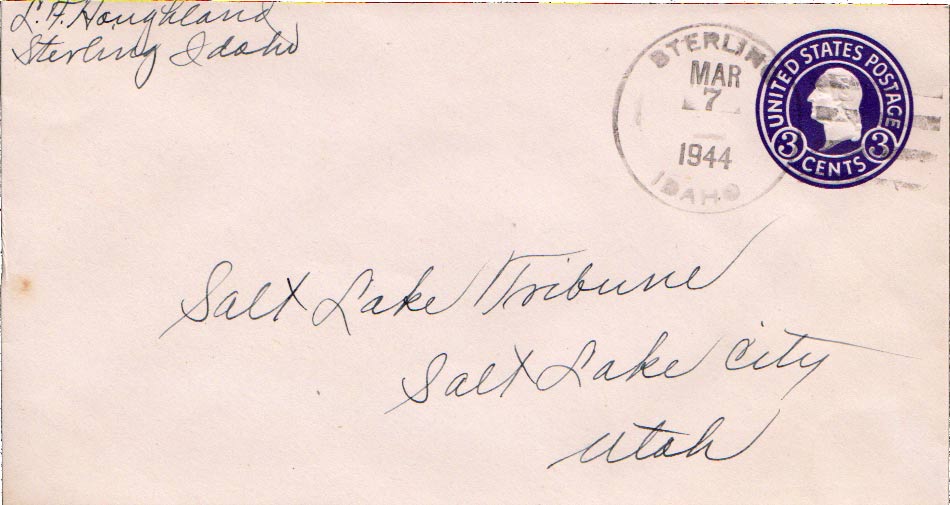 L. F. Houghland
Sterling Idaho
STERLING
MAR
7
1944
IDAHO
UNITED STATES POSTAGE
3 CENTS 3
Salt Lake Tribune
Salt Lake City
Utah